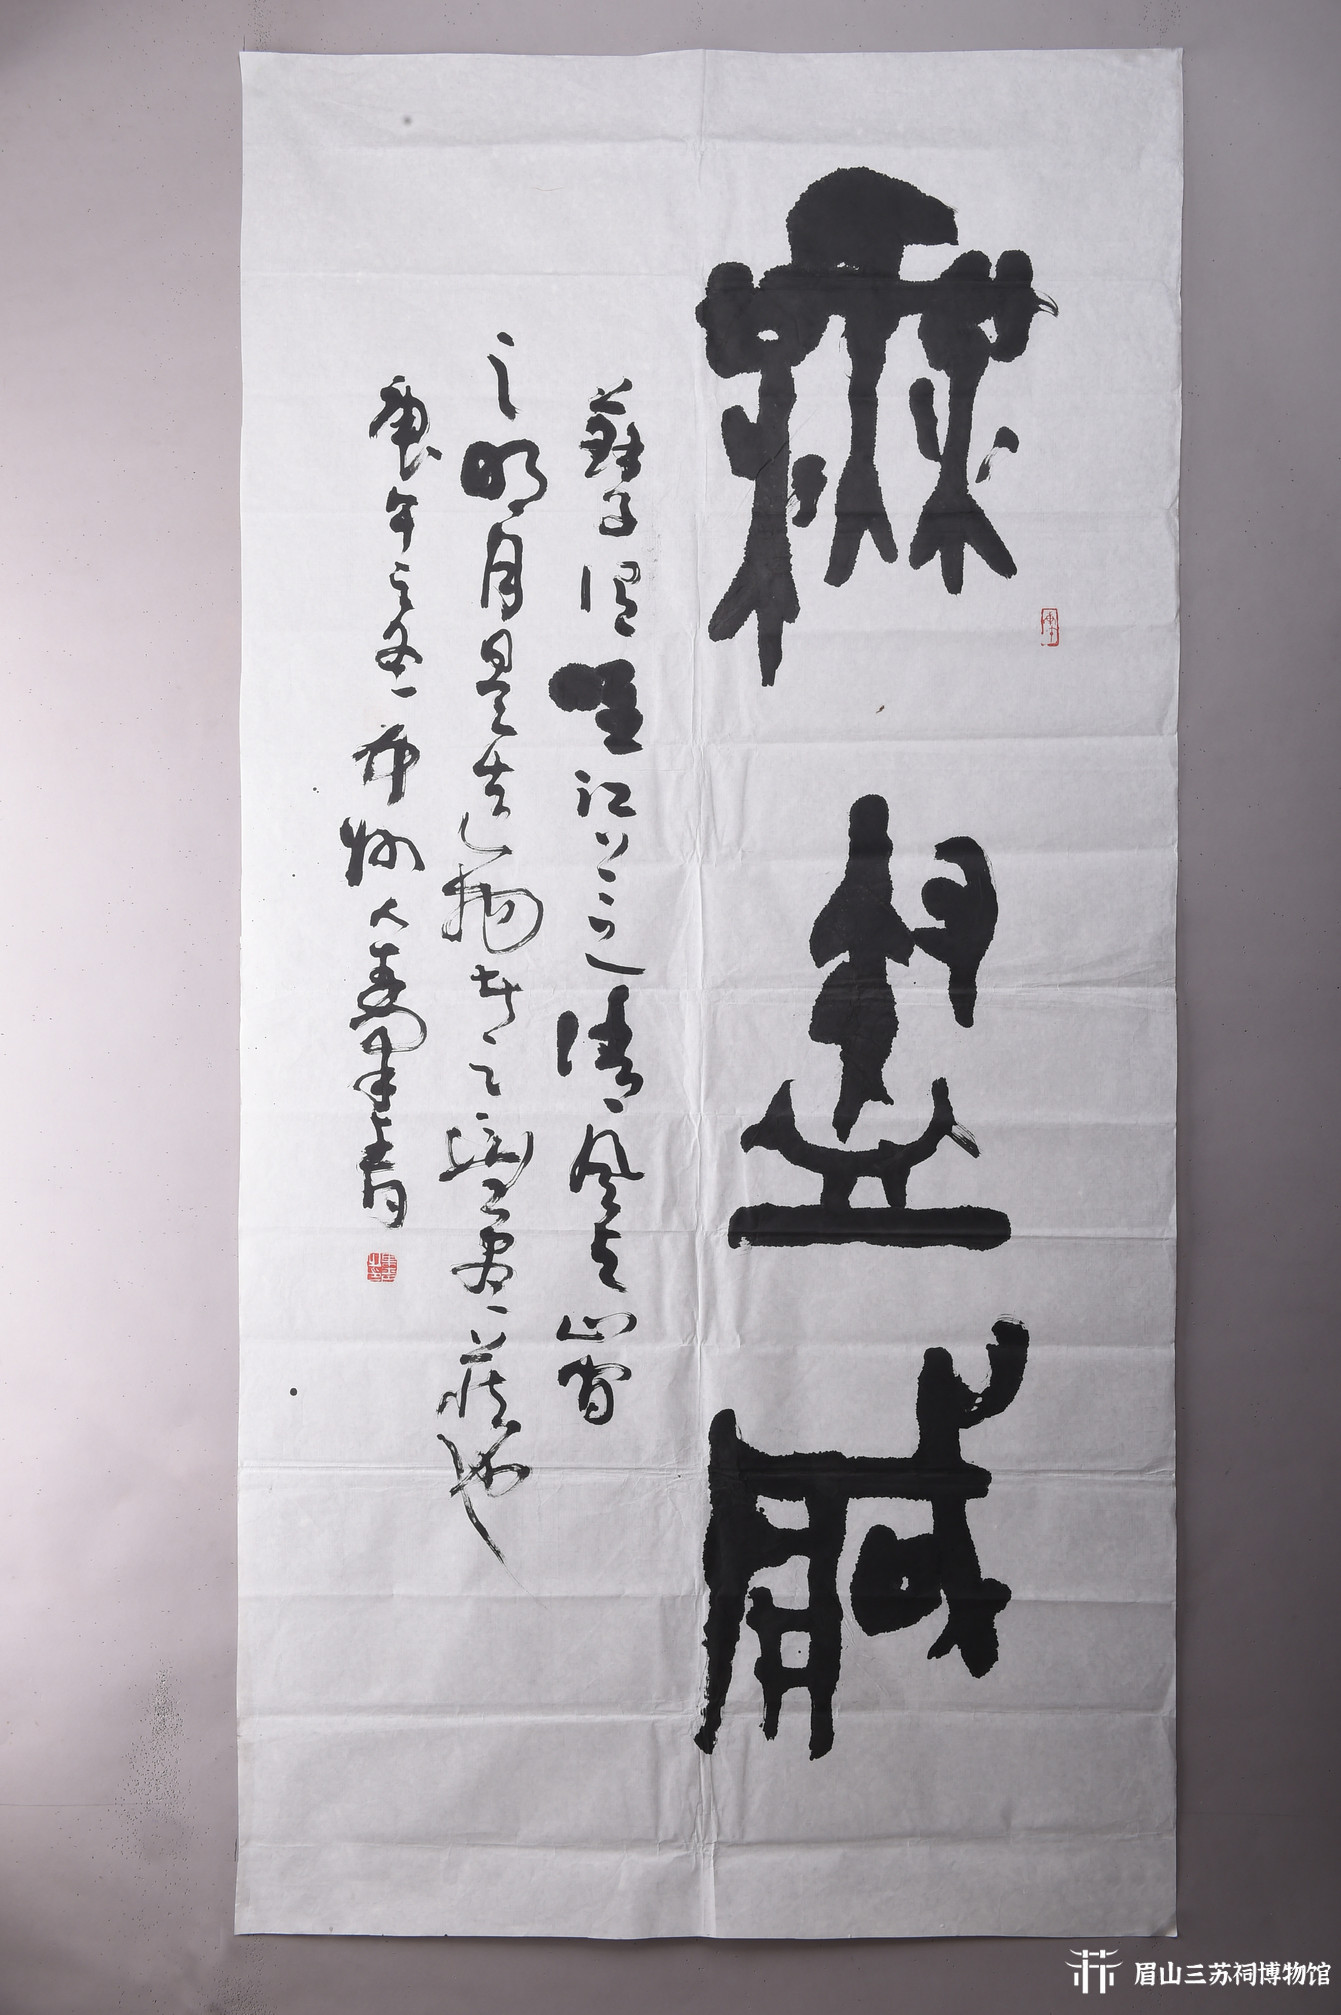 無盡藏
蘇子謂唯江上之清風与山間
之明月是造物者之無盡藏也
庚午之冬
眉山三苏祠博物馆